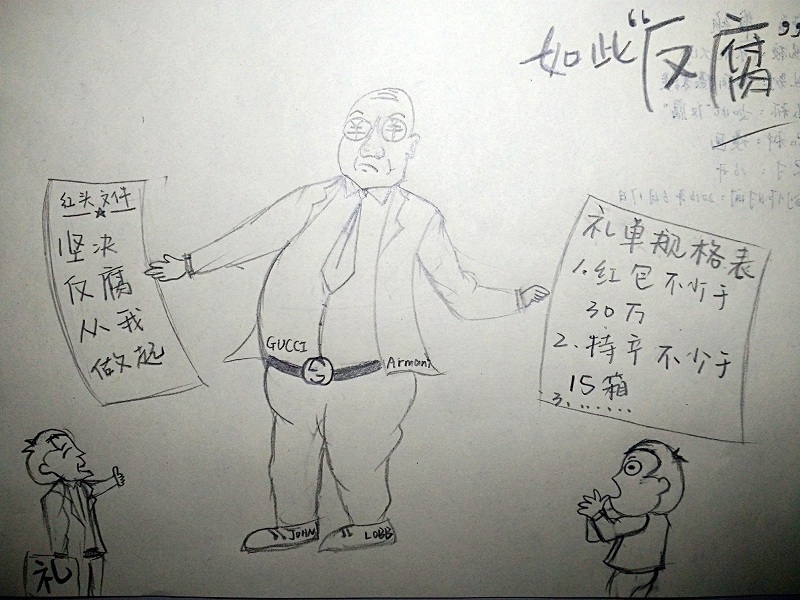 如此“反腐”
红头文件
坚决
反腐
从我
做起
礼单规格表
1.红包不少于
30万
2.特辛不少于
15箱
3.......
GUCCI
Armani
JOHN LOBB
礼